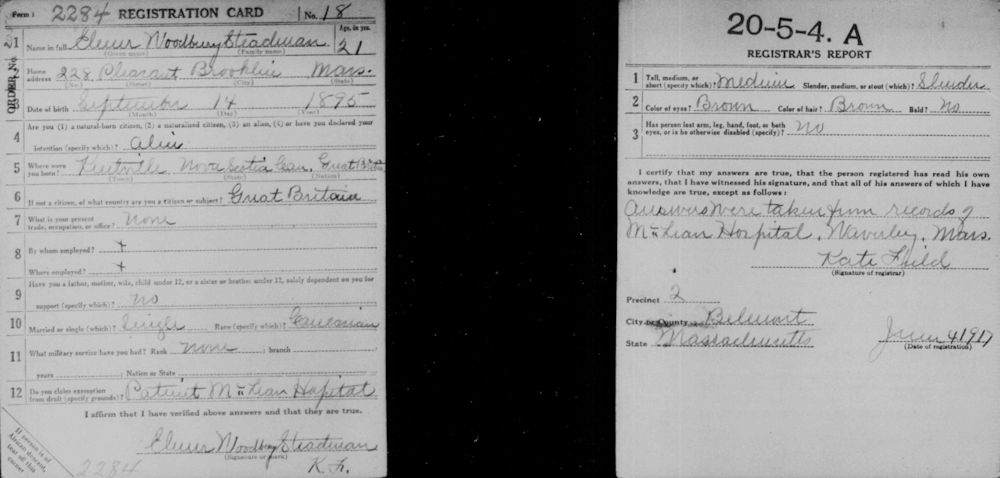 Form 1 2284 REGISTRATION CARD No. 18
Age, in yrs.
1 Name in full Elmer Woodbury Steadman 21
(Given name) (Family name)
ORDER No.
2 Home address 228 Pleasant Brooklin Mass.
(No.) (Street) (City) (State)
3 Date of birth September 14 1895
(Month) (Day) (Year)
Are you (1) a natural-born citizen, (2) a naturalized citizen, (3) an alien, (4) or have you declared your
4 intention (specify which)? Alien
5 Where were you born? Kentville Nova Scotia Can. Great Britain
(Town) (State) (Nation)
6 If not a citizen, of what country are you a citizen or subject? Great Britain
7 What is your present trade, occupation, or office? none
8 By whom employed? +
Where employed? +
Have you a father, mother, wife, child under 12, or a sister or brother under 12, solely dependent on you for
9 support (specify which)? no
10 Married or single (which)? Single Race (specify which)? Caucasian
11 What military service have you had? Rank none ; branch
years ; Nation or State
12 Do you claim exemption from draft (specify grounds)? Patient McLean Hospital
I affirm that I have verified above answers and that they are true.
Elmer Woodbury Steadman
(Signature or mark)
K. F.
If person is of African descent, tear off this corner
2284
20-5-4. A
REGISTRAR'S REPORT
1 Tall, medium, or short (specify which)? Medium Slender, medium, or stout (which)? Slender
2 Color of eyes? Brown Color of hair? Brown Bald? No
3 Has person lost arm, leg, hand, foot, or both eyes, or is he otherwise disabled (specify)? No
I certify that my answers are true, that the person registered has read his own
answers, that I have witnessed his signature, and that all of his answers of which I have
knowledge are true, except as follows:
Answers were taken from records of
McLean Hospital, Waverley, Mass.
Kate Field
(Signature of registrar)
Precinct 2
City or County Belmont
State Massachusetts June 4 1917
(Date of registration)